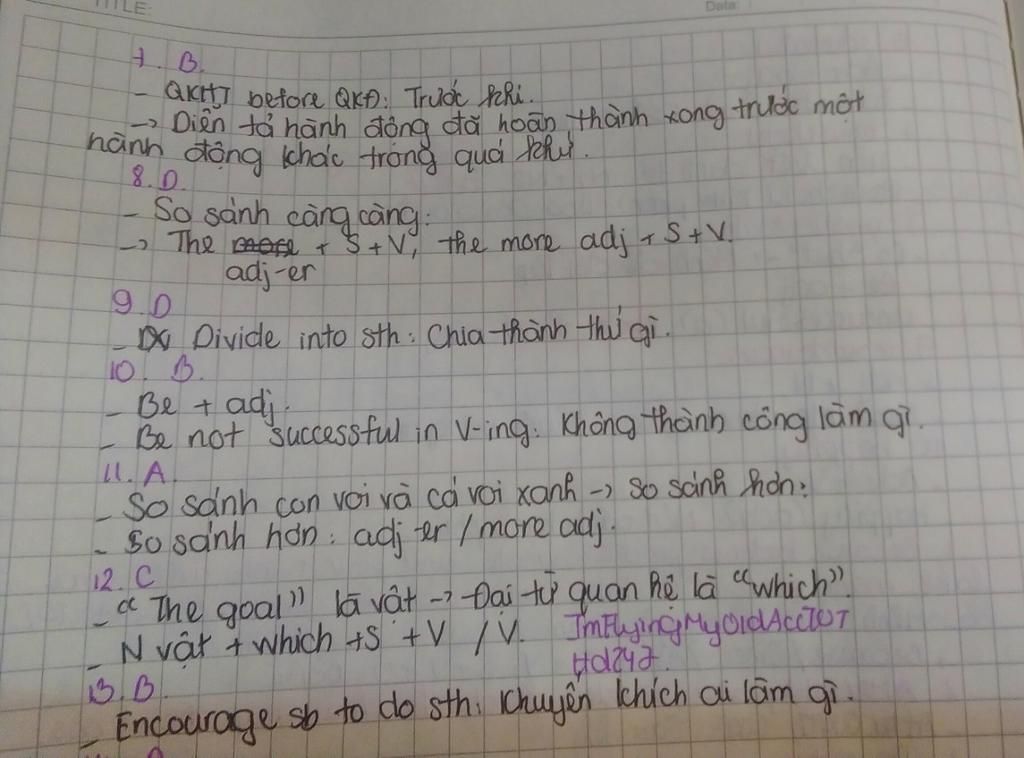 TITLE:
Date:
7. B.
- QKHT before QKĐ: Trước khi.
→ Diễn tả hành động đã hoàn thành xong trước một
hành động khác trong quá khứ.
8. D.
- So sánh càng càng:
→ The more + S + V, the more adj + S + V.
adj-er
9. D
- Divide into sth: Chia thành thứ gì.
10. B.
- Be + adj.
- Be not successful in V-ing: Không thành công làm gì.
11. A.
- So sánh con voi và cá voi xanh → so sánh hơn:
- So sánh hơn: adj er / more adj.
12. C
- "The goal" là vật → Đại từ quan hệ là "which".
- N vật + which + S + V / V. ImFlyingMyOldAccTOT
13. B.
- Encourage sb to do sth: Khuyến khích ai làm gì.